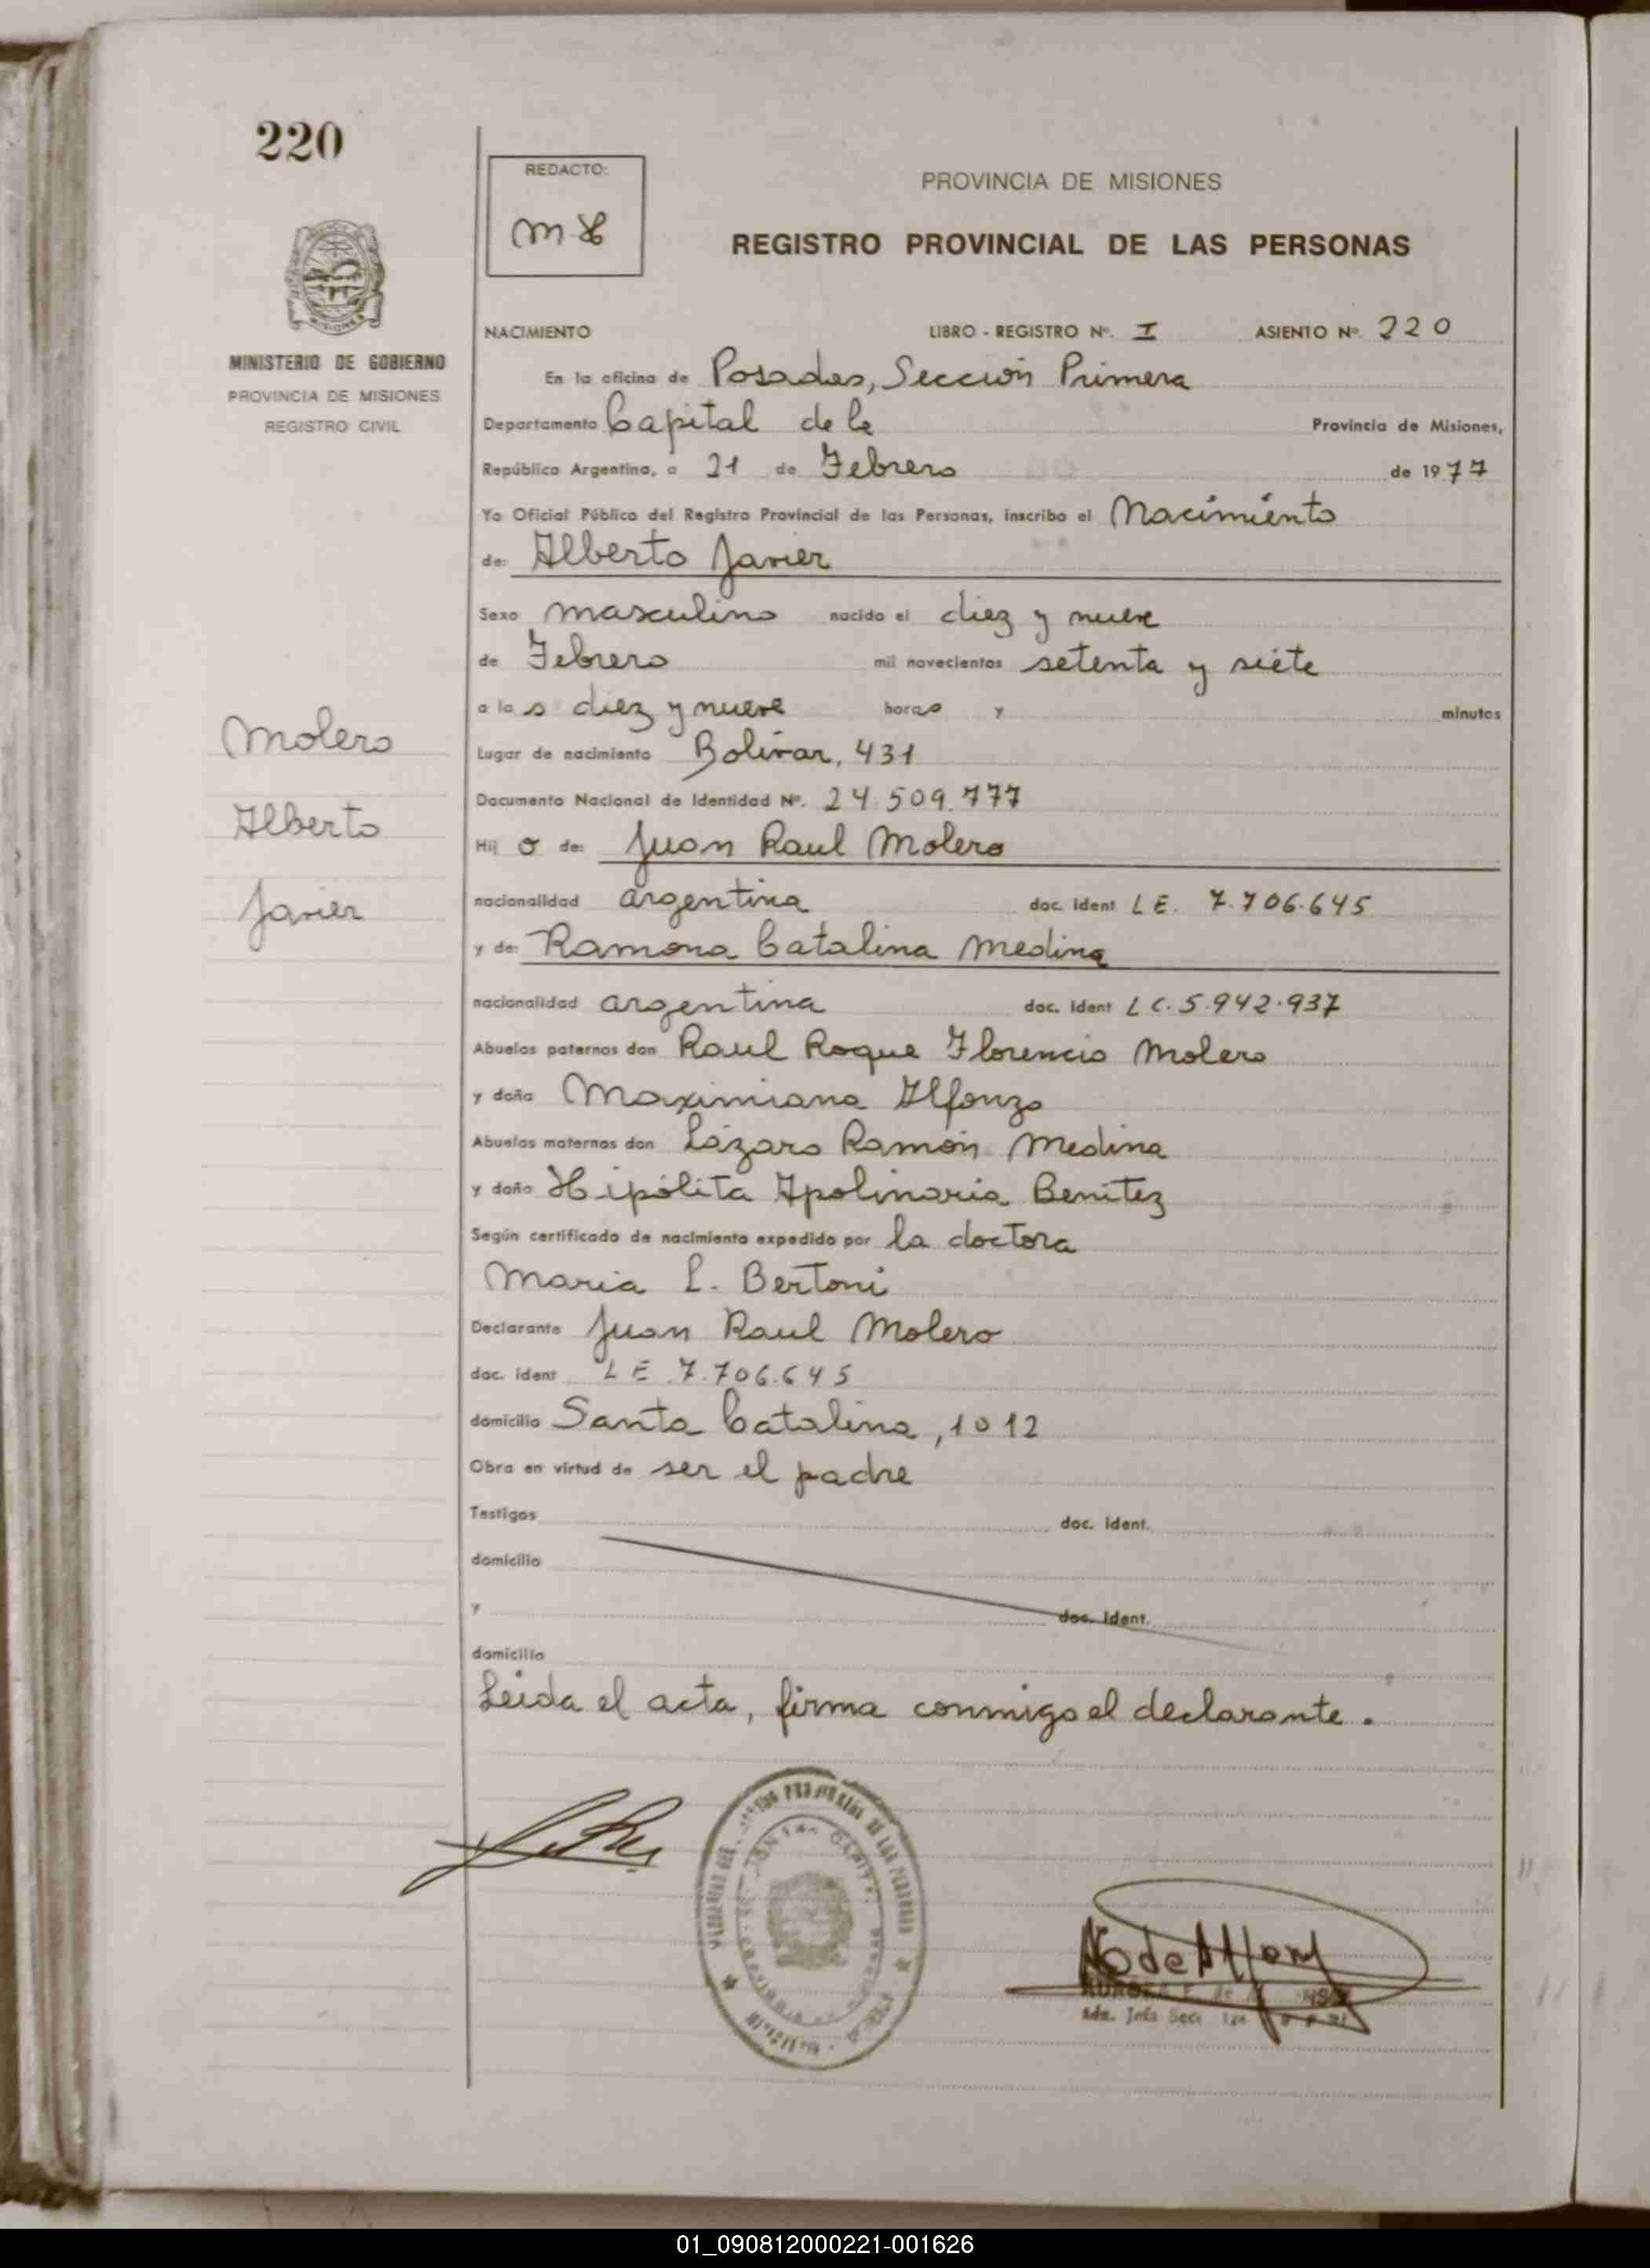 220
REDACTO:
PROVINCIA DE MISIONES
REGISTRO PROVINCIAL DE LAS PERSONAS
MISIONES
MINISTERIO DE GOBIERNO
PROVINCIA DE MISIONES
REGISTRO CIVIL
NACIMIENTO LIBRO - REGISTRO Nº. I ASIENTO Nº 220
En la oficina de Posadas, Sección Primera
Departamento Capital de la Provincia de Misiones,
República Argentina, a 21 de Febrero de 1977
Yo Oficial Público del Registro Provincial de las Personas, inscribo el Nacimiento
de: Alberto Javier
Sexo masculino nacido el diez y nueve
de Febrero mil novecientos setenta y siete
a las diez y nueve horas y minutos
Lugar de nacimiento Bolívar, 431
Documento Nacional de Identidad Nº. 24.509.777
Hij o de: Juan Raul Molero
nacionalidad argentina doc. ident LE. 7.706.645
y de: Ramona Catalina Medina
nacionalidad argentina doc. ident LC. 5.942.937
Abuelos paternos don Raul Roque Florencio Molero
y doña Maximiana Alfonzo
Abuelos maternos don Lázaro Ramón Medina
y doña Hipólita Apolinaria Benitez
Según certificado de nacimiento expedido por la doctora
Maria L. Bertoni
Declarante Juan Raul Molero
doc. ident LE 7.706.645
domicilio Santa Catalina, 1012
Obra en virtud de ser el padre
Testigos doc. ident.
domicilio
y doc. ident.
domicilio
Leida el acta, firma conmigo el declarante.
Molero
Alberto
Javier
01_090812000221-001626